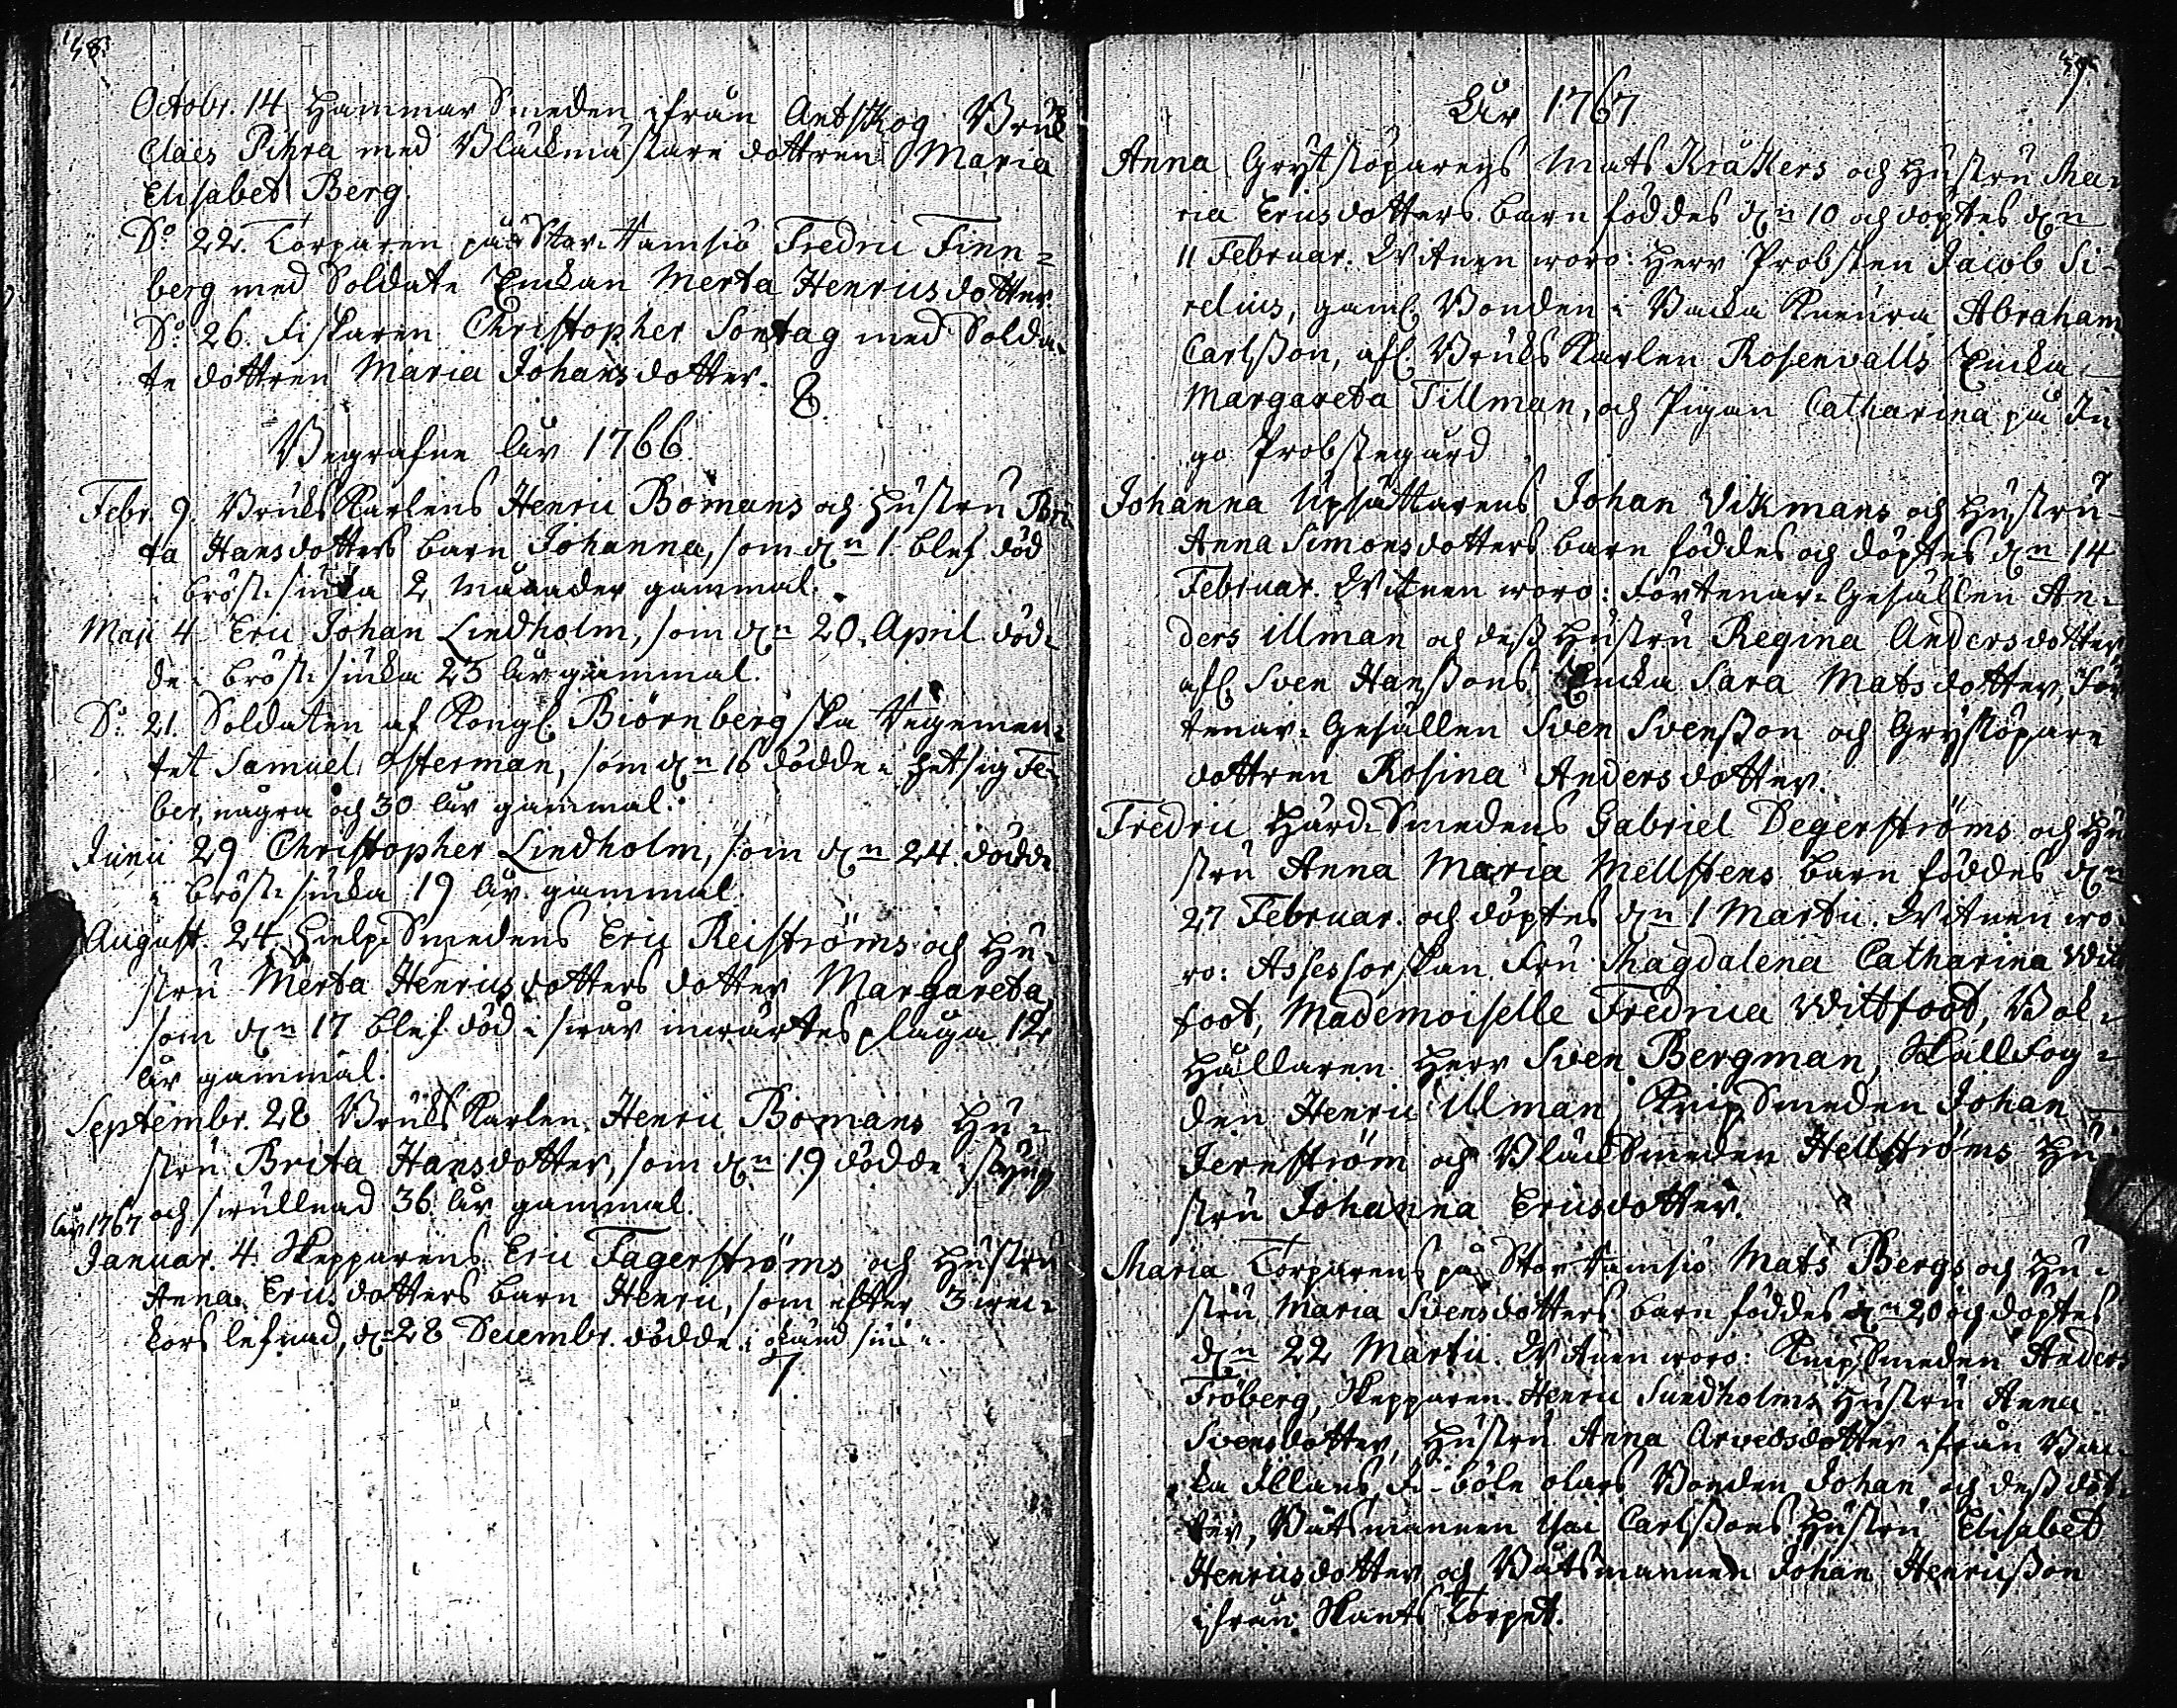 58.
Octobr. 14 Hammar Smeden ifrån Antskog Bruk
Claës Pihra med Bläckmästare dottren Maria
Elisabet Berg.
Do 22. Torparen på Stor-Ramsiö Fredric Finn=
berg med Soldate Enckan Merta Henricsdotter
Do 26. Fiskaren Christopher Sontag med Solda=
te dottren Maria Johansdotter.
8.
Begrafne åhr 1766.
Febr. 9. Bruks Karlens Henric Bomans och hustru Bri=
ta Hansdotters barn Johanna, som dn 1 blef död
i bröst siuka 2 månader gammal.
Maji 4 Eric Johan Lindholm, som dn 20. April död=
de i bröst siuka 23 åhr gammal.
Do 21. Soldaten af Kongl. Biörnbergska Regemen=
tet Samuel Osterman, som dn 16 dödde i hetsig Fe=
ber, några och 30 åhr gammal.
Junii 29 Christopher Lindholm, som dn 24. dödde
i bröst siuka 19 åhr gammal.
August. 24. Hielp Smedens Eric Reiströms och Hu=
stru Merta Henricsdotters dotter Margareta,
som dn 17 blef död i swår inwärtes plåga 12
åhr gammal.
Septembr. 28 Bruks Karlen Henric Bomans Hu=
stru Brita Hansdotter, som dn 19 dödde i styng
och swullnad 36 åhr gammal.
åhr 1767
Januar. 4. Skepparens Eric Fagerströms och Hustru
Anna Ericsdotters barn Henric, som efter 3 wec=
kors lefnad, dn 28 Decembr. dödde i okänd siuk.
7
59.
Åhr 1767
Anna Grytstöparens Mats Kräkters och Hustru Ma=
ria Ericsdotters barn föddes dn 10 och döptes dn
11 Februar. Witnen woro: Herr Probsten Jacob Si=
relius, gaml. Bonden i Backa Kneura Abraham
Carlsson, afl. Bruks Karlen Rosenvalls Encka
Margareta Tillman, och Pigan Catharina på In=
go Probstegård
Johanna Upsättarens Johan Vikmans och Hustru
Anna Simonsdotters barn föddes och döptes dn 14
Februar. Witnen woro: Förtenar-Gesällen An=
ders Illman och dess Hustru Regina Andersdotter,
afl. Sven Hanssons Encka Sara Matsdotter, För=
tenar-Gesällen Sven Svensson och Grytstöpare
dottren Rosina Andersdotter.
Fredric Härd-Smedens Gabriel Degerströms och Hu=
stru Anna Maria Mellstens barn föddes dn
27 Februar. och döptes dn 1 Martii. Witnen wo=
ro: Assessorskan Fru Magdalena Catharina Witt
foot, Mademoiselle Fredrica Wittfoot, Bok=
hållaren Herr Sven Bergman, Skallfog=
den Henric Ulman, Knip Smeden Johan
Jernström och Bläck Smeden Hellströms Hu=
stru Johanna Ericsdotter.
Maria Torparens på Stor Ramsiö Mats Bergs och Hu=
stru Maria Svensdotters barn föddes dn 20 och döptes
dn 22 Martii. Witnen woro: Knip Smeden Anders
Fröberg, Skepparen Henric Sundholms Hustru Anna
Svensdotter, Hustru Anna Arvedsdotter ifrån Bac=
ka Illans, böle olars Bonden Johan och dess dot=
ter, Båtsmannen Carlssons Hustru Elisabet
Henricsdotter och Båtsmannen Johan Henricsson
ifrån Skants Torpet.